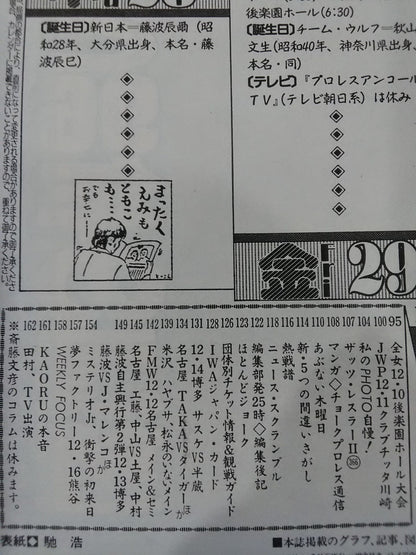 後楽園ホール(6:30)
〔誕生日〕チーム・ウルフ=秋山
文生(昭和40年、神奈川県出身、
本名・同)
〔テレビ〕『プロレスアンコール
TV』(テレビ朝日系)は休み
〔誕生日〕新日本=藤波辰爾(昭
和28年、大分県出身、本名・藤
波辰巳)
まったく
えみも
ともこ
も…
でも
お幸せに…
金 Fri 29
162 161 158 157 154 149 145 142 139 134 131 128 126 125 122 118 116 109 108 107 104 101 100 95
全女12・10後楽園ホール大会
JWP12・11クラブチッタ川崎
私のPHOTO自慢!
ザッツ・レスラーⅡ
マンガ◇チョークプロレス通信
あぶない木曜日
新・5つの間違いさがし
熱戦譜
ニュース・スクランブル
編集部発25時◇編集後記
ほとんどジョーク
団体別チケット情報&観戦ガイド
IWAジャパン・カード
12・14博多 サスケVS半蔵
名古屋 TAKAVSタイガーほか
米沢 ハヤブサ、松永のいないメイン
FMW12・12名古屋 メイン&セミ
名古屋 工藤、中山VS土屋、中村
藤波自主興行第2弾12・13博多
藤波VSJ・マレンコほか
ミステリオJr.衝撃の初来日
夢ファクトリー12・16熊谷
WEEKLY FOCUS
KAORUの本音
田村、TV出演
※斎藤文彦のコラムは休みます。
表紙◘馳 浩
■本誌掲載のグラフ、記事、図